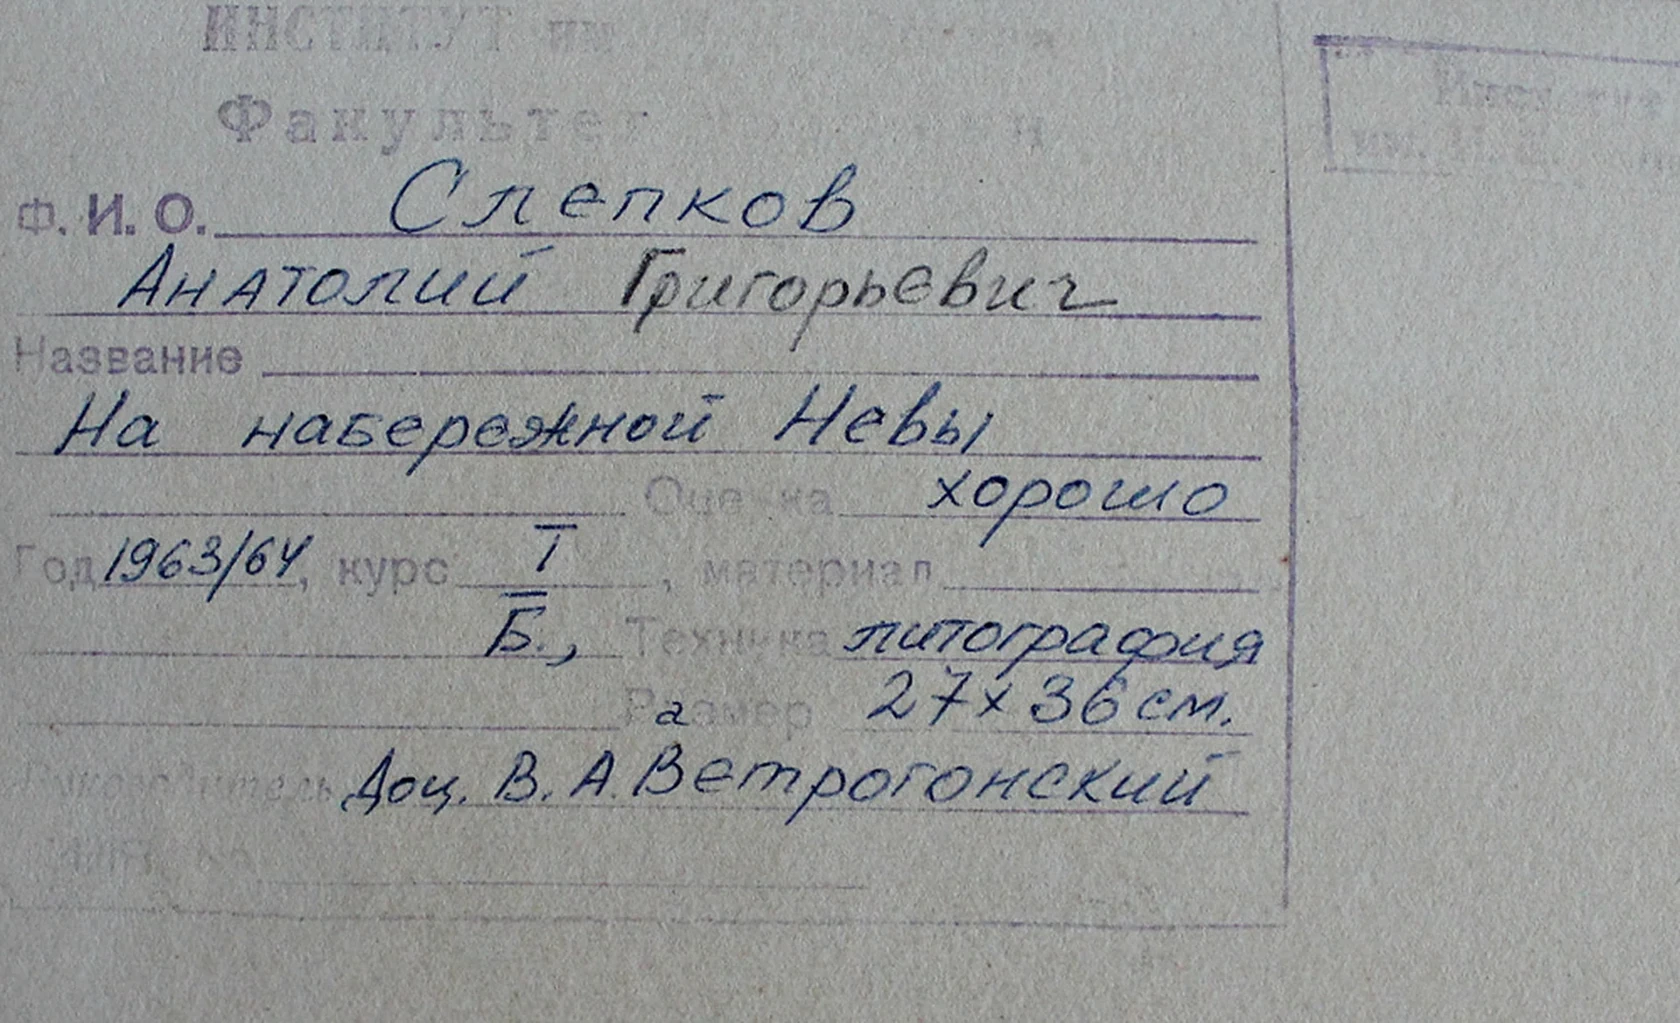 ИНСТИТУТ им
Факультет
Ф. И. О. Слепков
Анатолий Григорьевич
Название
На набережной Невы
Оценка хорошо
Год 1963/64, курс I, материал
Б., Техника литография
Размер 27х36 см.
Руководитель Доц. В. А. Ветрогонский